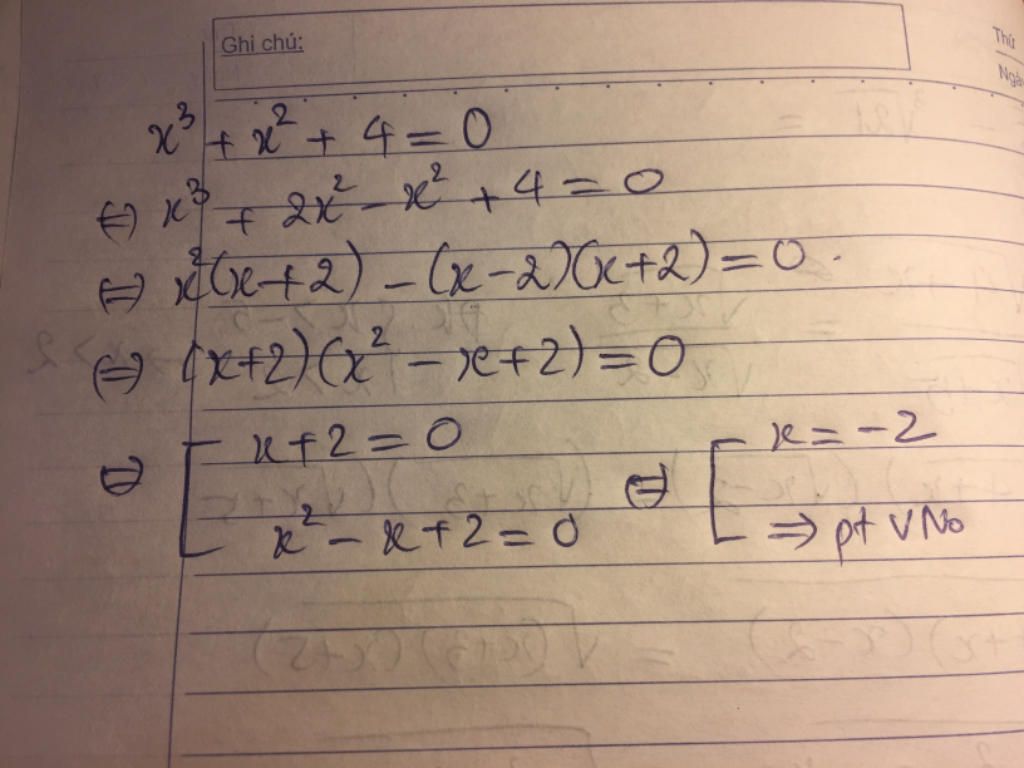 Ghi chú:
Thứ
Ngày
x³ + x² + 4 = 0
⇔ x³ + 2x² - x² + 4 = 0
⇔ x²(x+2) - (x-2)(x+2) = 0.
⇔ (x+2)(x² - x+2) = 0
⇔ [ x+2 = 0 ⇔ [ x = -2
x² - x+2 = 0 ⇒ pt VNo